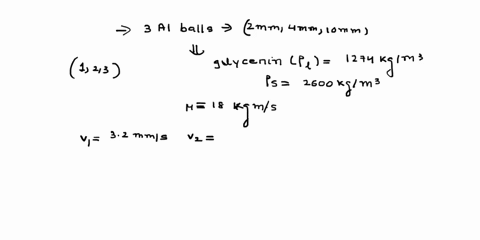 → 3 Al balls → (2mm, 4mm, 10mm,
⇓
(1,2,3) glycenin (Pl) = 1274 kg/m³
Ps = 2600 kg/m³
M = 18 kg m/s
V₁ = 3.2 mm/s V₂ =